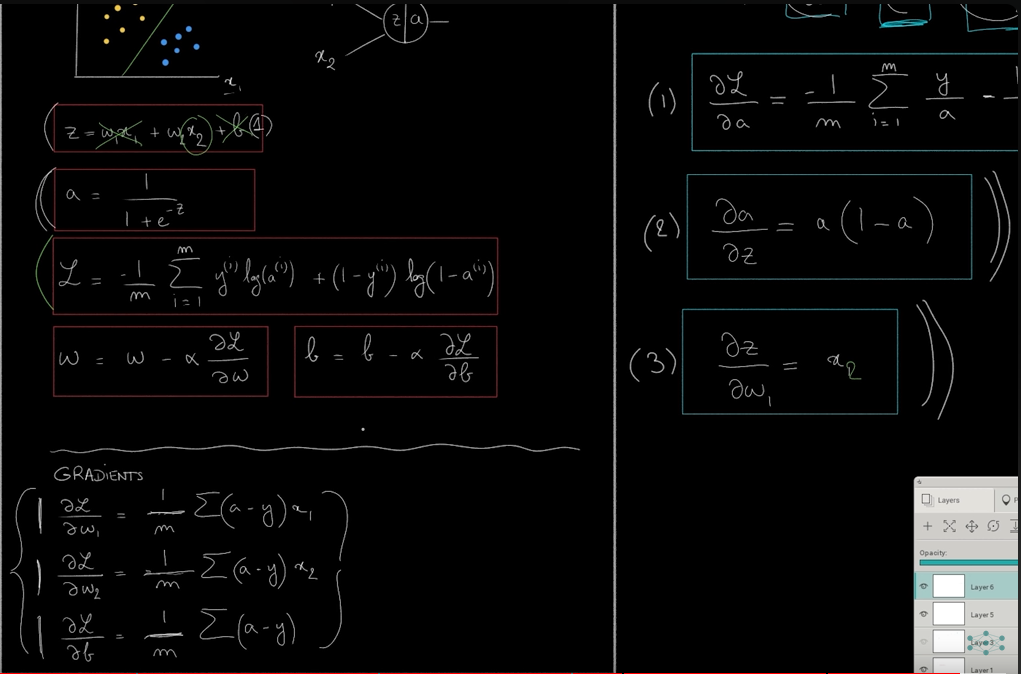 z a
x₂
x₁
z = w₁x₁ + w₂x₂ + b (1)
a = 1 / (1 + e^-z)
ℒ = -1/m Σ_{i=1}^{m} y^(i) log(a^(i)) + (1 - y^(i)) log(1 - a^(i))
w = w - α ∂ℒ/∂w
b = b - α ∂ℒ/∂b
GRADIENTS
∂ℒ/∂w₁ = 1/m Σ(a - y) x₁
∂ℒ/∂w₂ = 1/m Σ(a - y) x₂
∂ℒ/∂b = 1/m Σ(a - y)
(1) ∂ℒ/∂a = -1/m Σ_{i=1}^{m} y/a -
(2) ∂a/∂z = a(1 - a)
(3) ∂z/∂w₁ = x₂
Layers P
Opacity:
Layer 6
Layer 5
Layer 3
Layer 1